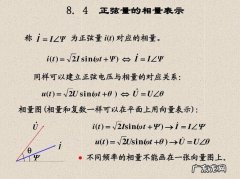 8.4 正弦量的相量表示
称 İ = I∠Ψ 为正弦量 i(t) 对应的相量。
i(t) = √2 I sin(ωt + Ψ) ⇔ İ = I∠Ψ
同样可以建立正弦电压与相量的对应关系：
u(t) = √2 U sin(ωt + θ) ⇔ U̇ = U∠θ
相量图(相量和复数一样可以在平面上用向量表示)：
U̇
İ
θ
Ψ
i(t) = √2 I sin(ωt + Ψ) → İ = I∠Ψ
u(t) = √2 U sin(ωt + θ) → U̇ = U∠θ
• 不同频率的相量不能画在一张向量图上。